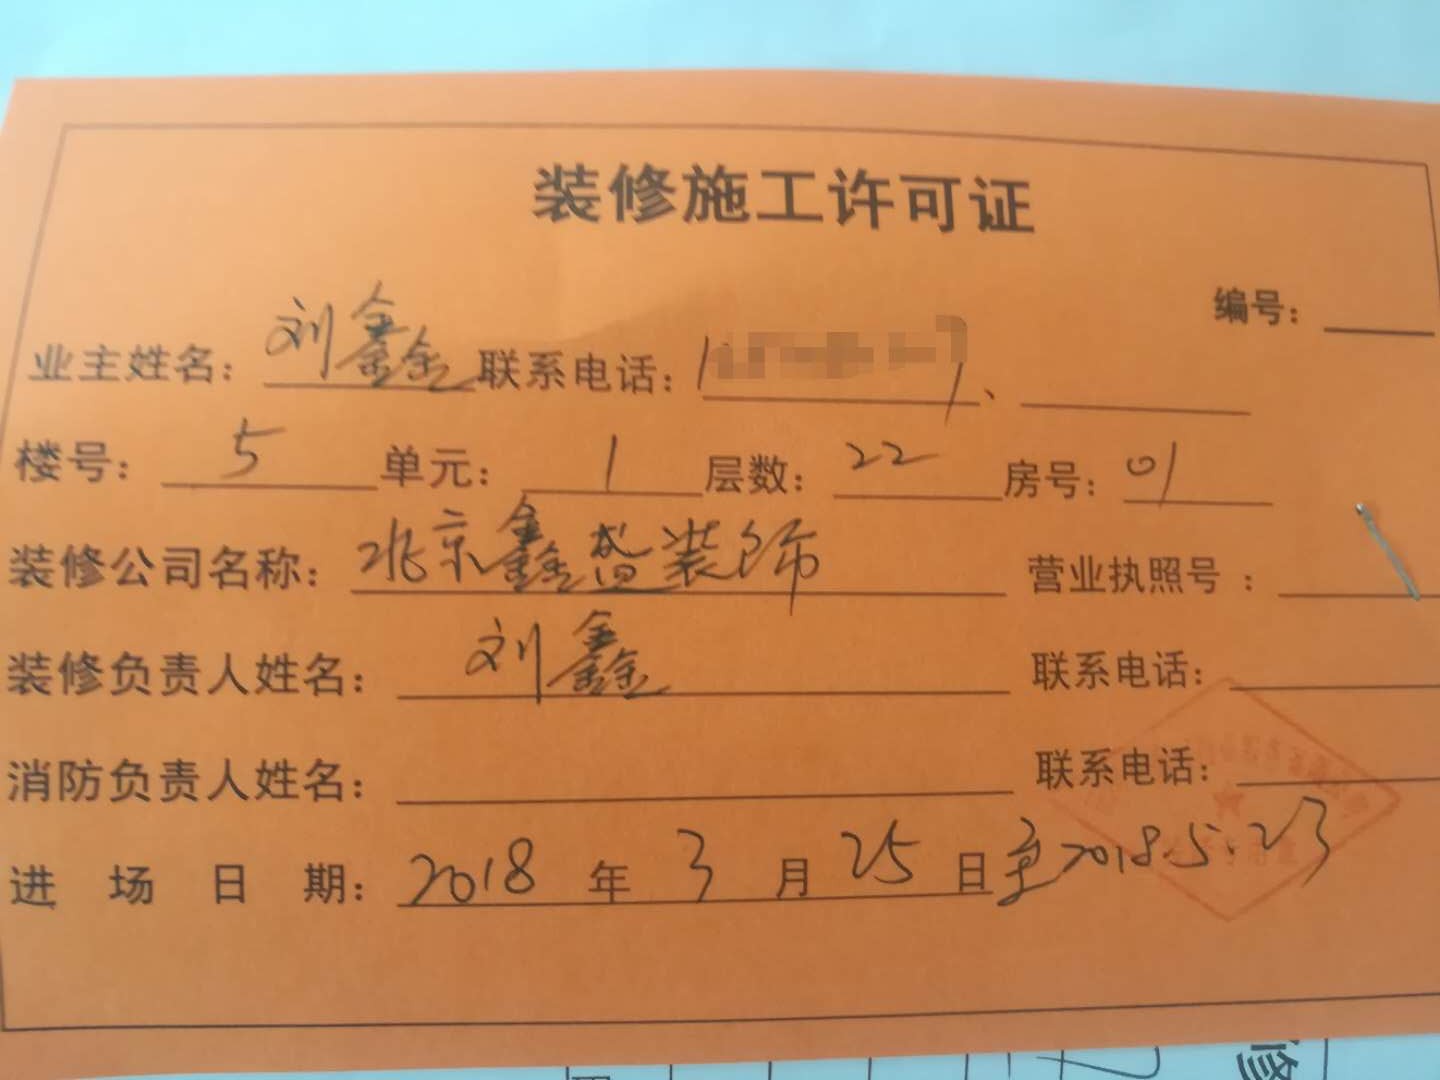 装修施工许可证
编号：
业主姓名：刘鑫 联系电话：1 、
楼号：5 单元：1 层数：22 房号：01
装修公司名称：北京鑫盛装饰 营业执照号：
装修负责人姓名：刘鑫 联系电话：
消防负责人姓名： 联系电话：
进场日期：2018年3月25日至2018.5.23
修